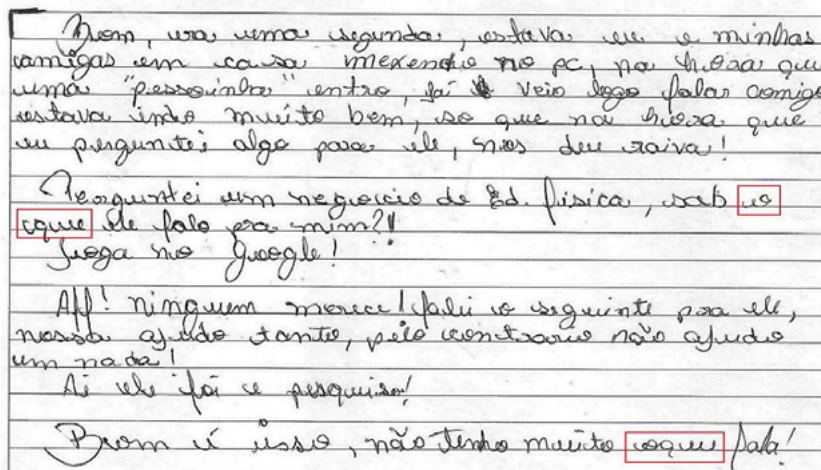 Bom, era uma segunda, estava eu e minhas
camigas em casa mexendo no pc, na hora que
uma "pessoinha" entro, já veio logo falar comigo
estava indo muito bem, so que na hora que
eu perguntei algo para ele, nos deu raiva!
Perguntei um negocio de Ed. física, sab o
que ele falo pra mim?!
Joga no Google!
Aff! ninguem merece! falei o seguinte pra ele,
nossa ajudo tanto, pelo contrario não ajudo
em nada!
Ai ele foi e pesquiso!
Bom é isso, não tenho muito oque fala!